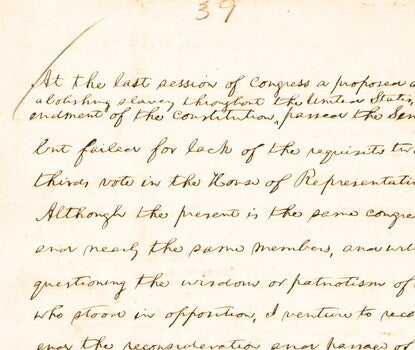 39
At the last session of Congress a proposed a
abolishing slavery throughout the United States,
endment of the Constitution, passed the Sen
but failed for lack of the requisite tw
thirds vote in the House of Representati
Although the present is the same congre
and nearly the same members, and with
questioning the wisdom or patriotism of
who stood in opposition, I venture to reco
end the reconsideration and passage of